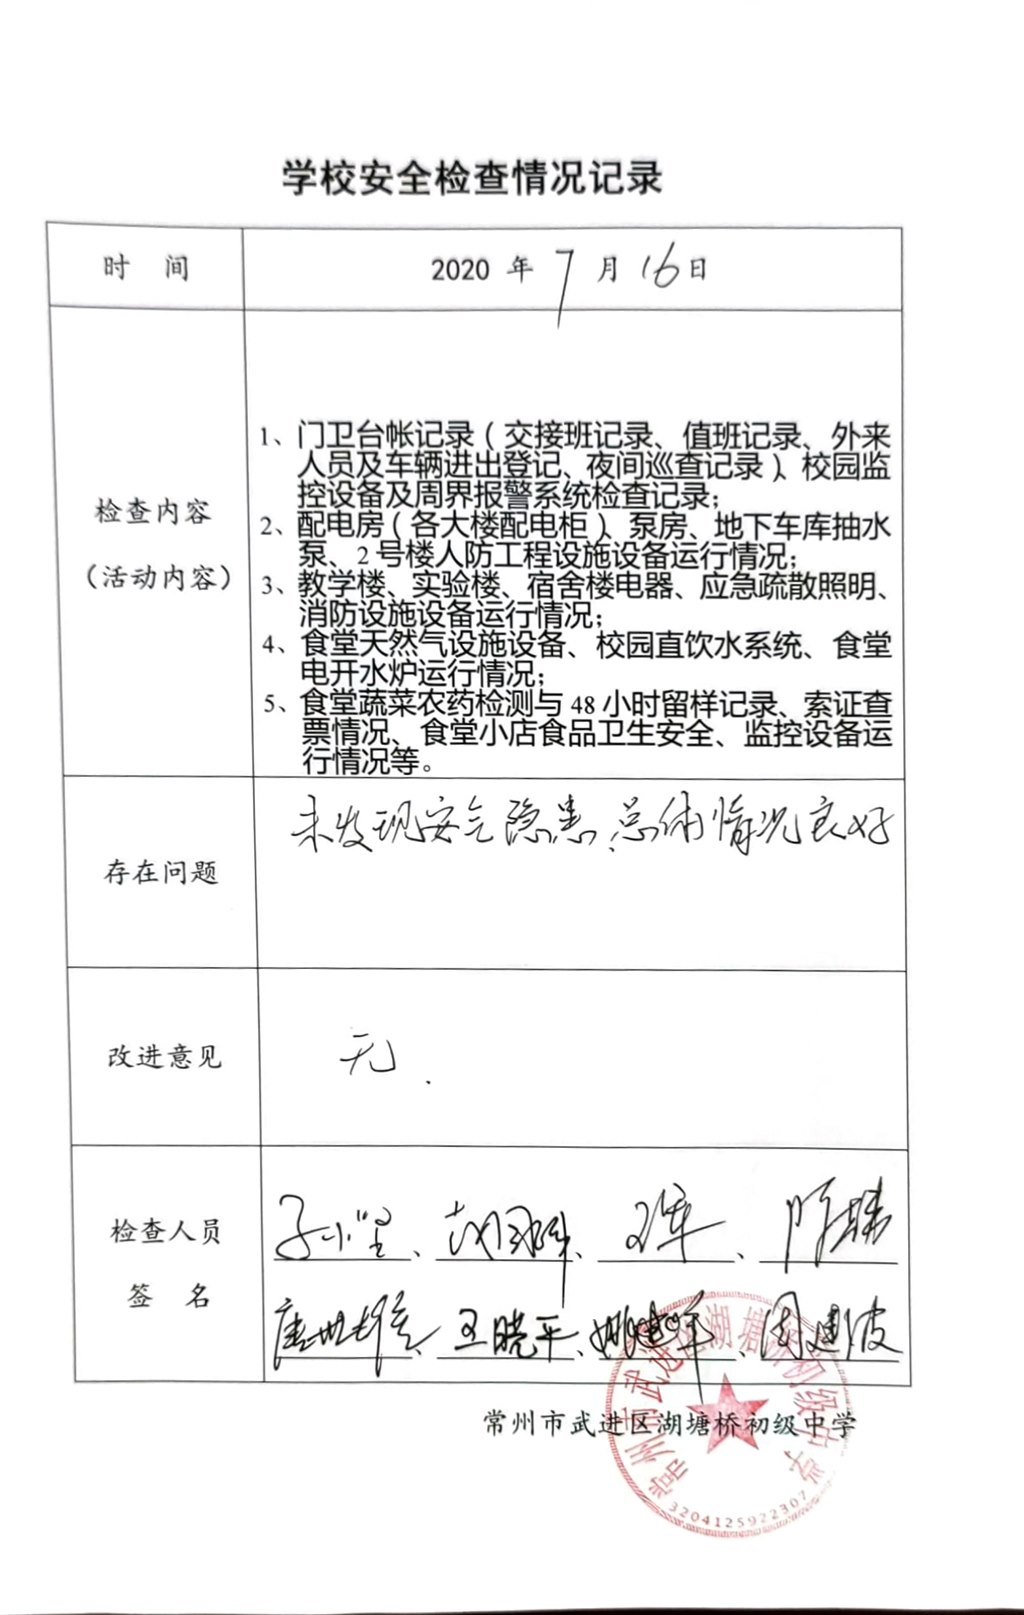 学校安全检查情况记录
时 间
2020 年 7 月 16 日
检查内容
（活动内容）
1、门卫台帐记录（交接班记录、值班记录、外来
人员及车辆进出登记、夜间巡查记录）、校园监
控设备及周界报警系统检查记录；
2、配电房（各大楼配电柜）、泵房、地下车库抽水
泵、2 号楼人防工程设施设备运行情况；
3、教学楼、实验楼、宿舍楼电器、应急疏散照明、
消防设施设备运行情况；
4、食堂天然气设施设备、校园直饮水系统、食堂
电开水炉运行情况；
5、食堂蔬菜农药检测与 48 小时留样记录、索证查
票情况、食堂小店食品卫生安全、监控设备运
行情况等。
存在问题
未发现安全隐患，总体情况良好
改进意见
无.
检查人员
签 名
王晓平、
周建波
常州市武进区湖塘桥初级中学
常州市武进区湖塘桥初级中学
3204125922307